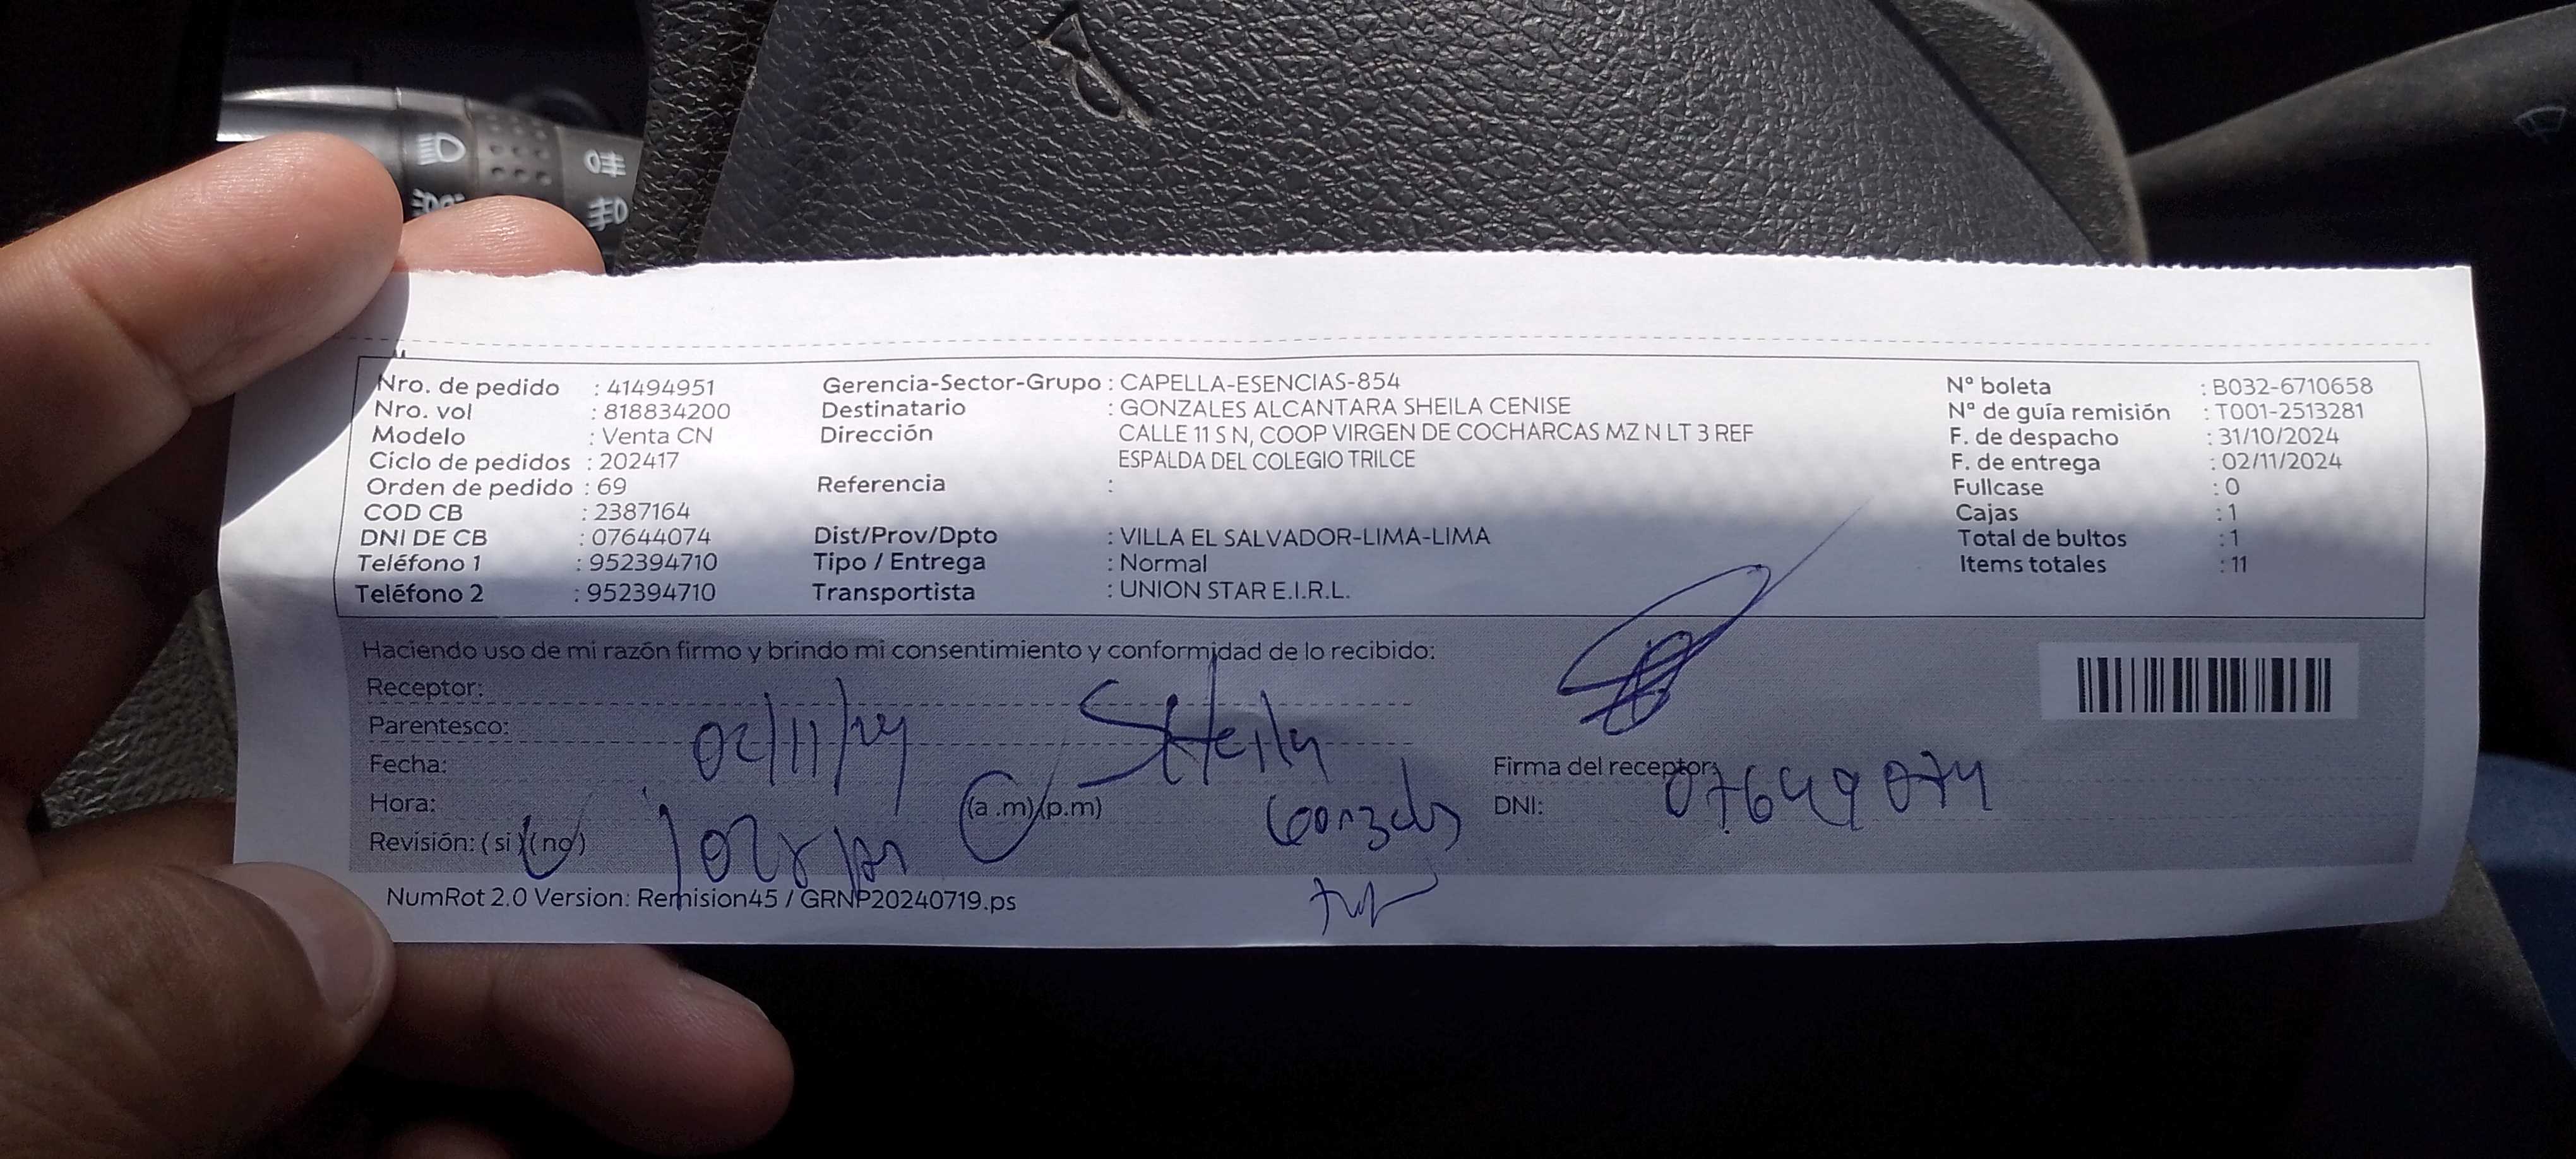 Nro. de pedido : 41494951
Nro. vol : 818834200
Modelo : Venta CN
Ciclo de pedidos : 202417
Orden de pedido : 69
COD CB : 2387164
DNI DE CB : 07644074
Teléfono 1 : 952394710
Teléfono 2 : 952394710
Gerencia-Sector-Grupo : CAPELLA-ESENCIAS-854
Destinatario : GONZALES ALCANTARA SHEILA CENISE
Dirección CALLE 11 S N, COOP VIRGEN DE COCHARCAS MZ N LT 3 REF
ESPALDA DEL COLEGIO TRILCE
Referencia :
Dist/Prov/Dpto : VILLA EL SALVADOR-LIMA-LIMA
Tipo / Entrega : Normal
Transportista : UNION STAR E.I.R.L.
Nº boleta : B032-6710658
Nº de guía remisión : T001-2513281
F. de despacho : 31/10/2024
F. de entrega : 02/11/2024
Fullcase : 0
Cajas : 1
Total de bultos : 1
Items totales : 11
Haciendo uso de mi razón firmo y brindo mi consentimiento y conformidad de lo recibido:
Receptor:
Parentesco:
02/11/24 Sheila
Fecha:
Hora: (a .m)(p.m)
Revisión: ( si )( no )
Firma del receptor:
DNI:
NumRot 2.0 Version: Remision45 / GRNP20240719.ps